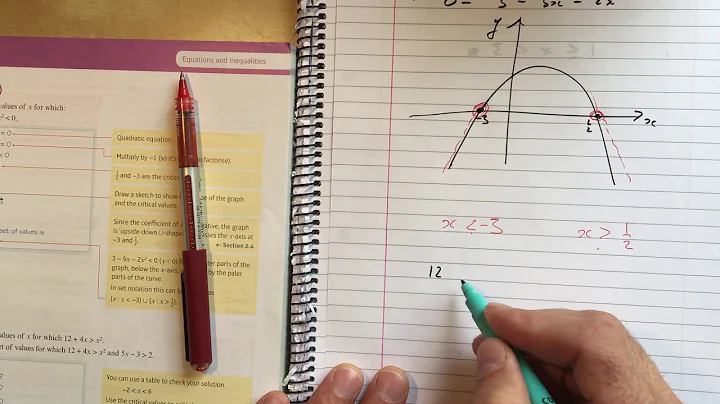 Equations and inequalities
values of x for which:
x² < 0.
= 0
= 0
= 0
Quadratic equation.
Multiply by −1 (so it's
to factorise).
½ and −3 are the critical
Draw a sketch to show
shape of the graph
and the critical values.
Since the coefficient of
negative, the graph
is 'upside-down ∪-shaped
crosses the x-axis at
−3 and ½.
← Section 2.4
set of values is
3 − 5x − 2x² < 0 (y < 0)
outer parts of the
graph, below the x-axis,
by the paler
parts of the curve.
In set notation this can
{x : x < −3} ∪ {x : x > ½}.
values of x for which 12 + 4x > x².
set of values for which 12 + 4x > x² and 5x − 3 > 2.
You can use a table to check your solution.
−2 < x < 6
Use the critical values
y
x
-3
½
x < -3
x > ½
12